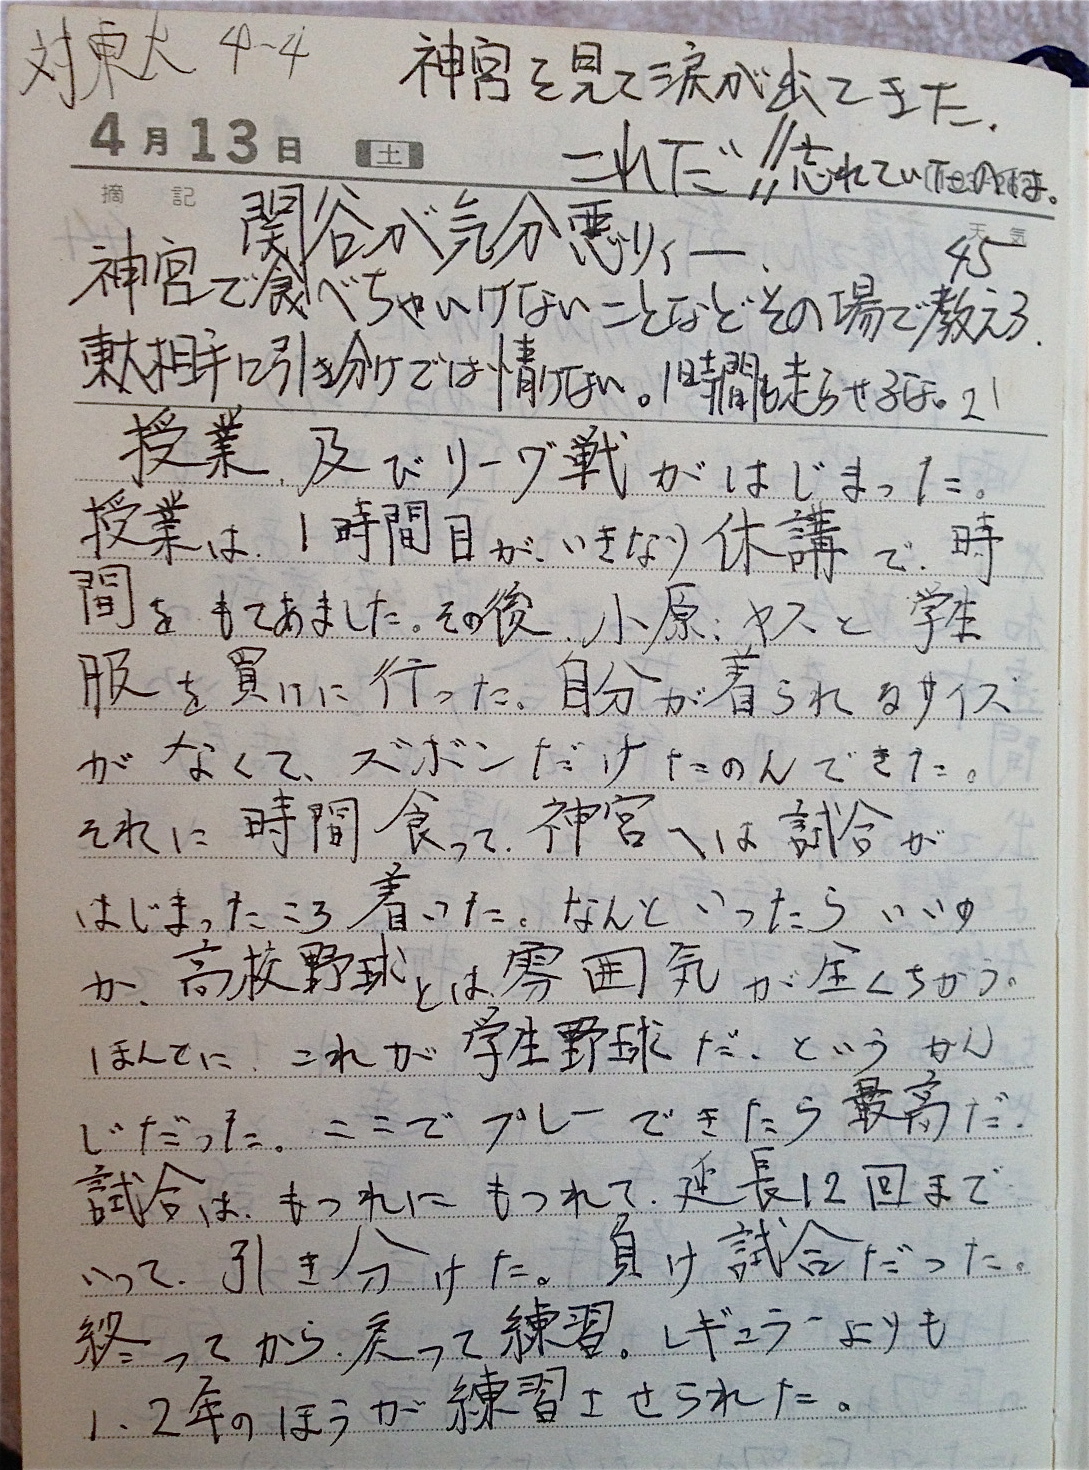 対東大 4-4
神宮を見て涙が出てきた.
4月13日 土
これだ!!忘れていたものは。
摘記
天気
関谷が気分悪リィー. 45
神宮で食べちゃいけないことなどその場で教えろ.
東大相手に引き分けでは情けない。1時間も走らせるな。21
授業、及びリーグ戦がはじまった。
授業は、1時間目が、いきなり休講で、時
間をもてあました。その後、小原、ヤスと学生
服を買いに行った。自分が着られるサイズ
がなくて、ズボンだけたのんできた。
それに時間食って、神宮へは試合が
はじまったころ着いた。なんといったらいいの
か、高校野球とは、雰囲気が全くちがう。
ほんとに、これが学生野球だ、というかん
じだった。ここでプレーできたら最高だ.
試合は、もつれにもつれて、延長12回まで
いって、引き分けた。負け試合だった。
終ってから、戻って練習。レギュラーよりも
1、2年のほうが練習させられた。